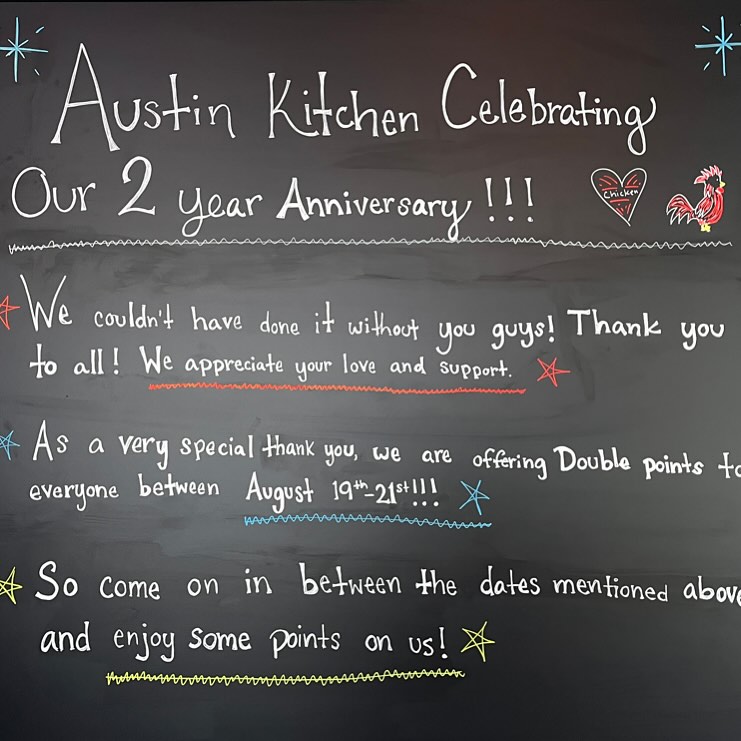 Austin Kitchen Celebrating
Our 2 year Anniversary!!!
Chicken
We couldn't have done it without you guys! Thank you
to all! We appreciate your love and support.
As a very special thank you, we are offering Double points to
everyone between August 19th-21st!!!
So come on in between the dates mentioned above
and enjoy some points on us!